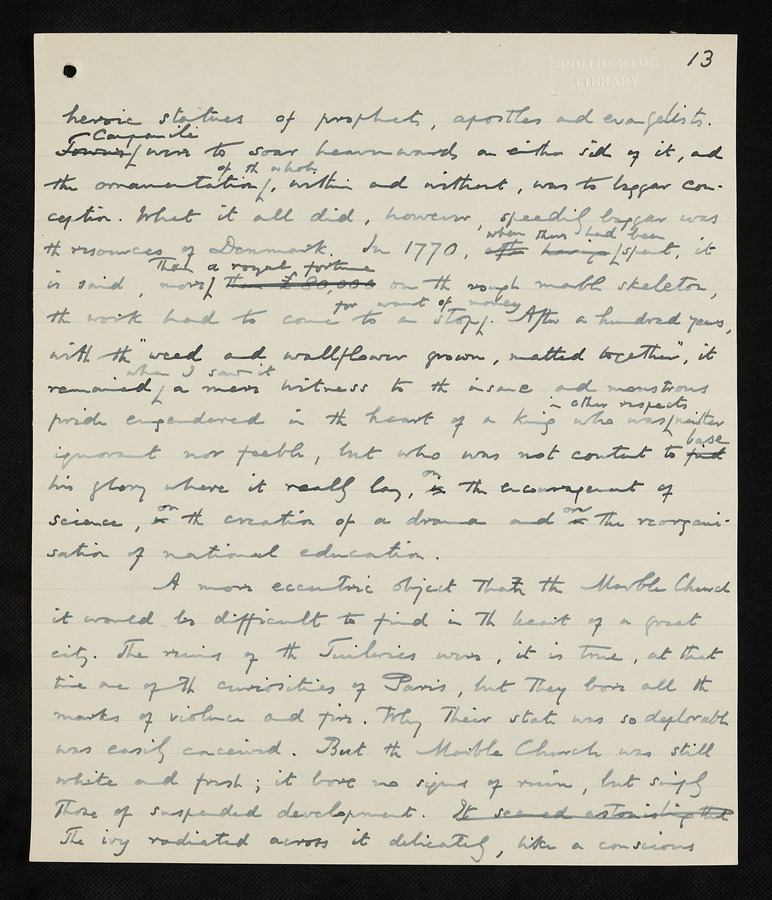 13
BROTHERTON
LIBRARY
heroic statues of prophets, apostles and evangelists.
Campanili
Towers were to soar heavenwards on either side of it, and
of the whole
the ornamentation, within and without, was to beggar con-
ception. What it all did, however, speedily beggar was
when there had been
the resources of Denmark. In 1770, after having spent, it
than a royal fortune
is said, more than £80,000 on the rough marble skeleton,
for want of money
the work had to come to a stop. After a hundred years,
with the "weed and wallflower grown, matted together", it
when I saw it
remained, a mere witness to the insane and monstrous
in other respects
pride engendered in the heart of a king who was neither
base
ignorant nor feeble, but who was not content to find
on
his glory where it really lay, in the encouragement of
on on
science, in the creation of a drama and in the reorgani-
sation of national education.
A more eccentric object than the Marble Church
it would be difficult to find in the heart of a great
city. The ruins of the Tuileries were, it is true, at that
time one of the curiosities of Paris, but they bore all the
marks of violence and fire. Why their state was so deplorable
was easily conceived. But the Marble Church was still
white and fresh; it bore no signs of ruin, but simply
those of suspended development. It seemed astonishing that
The ivy radiated across it delicately, like a conscious